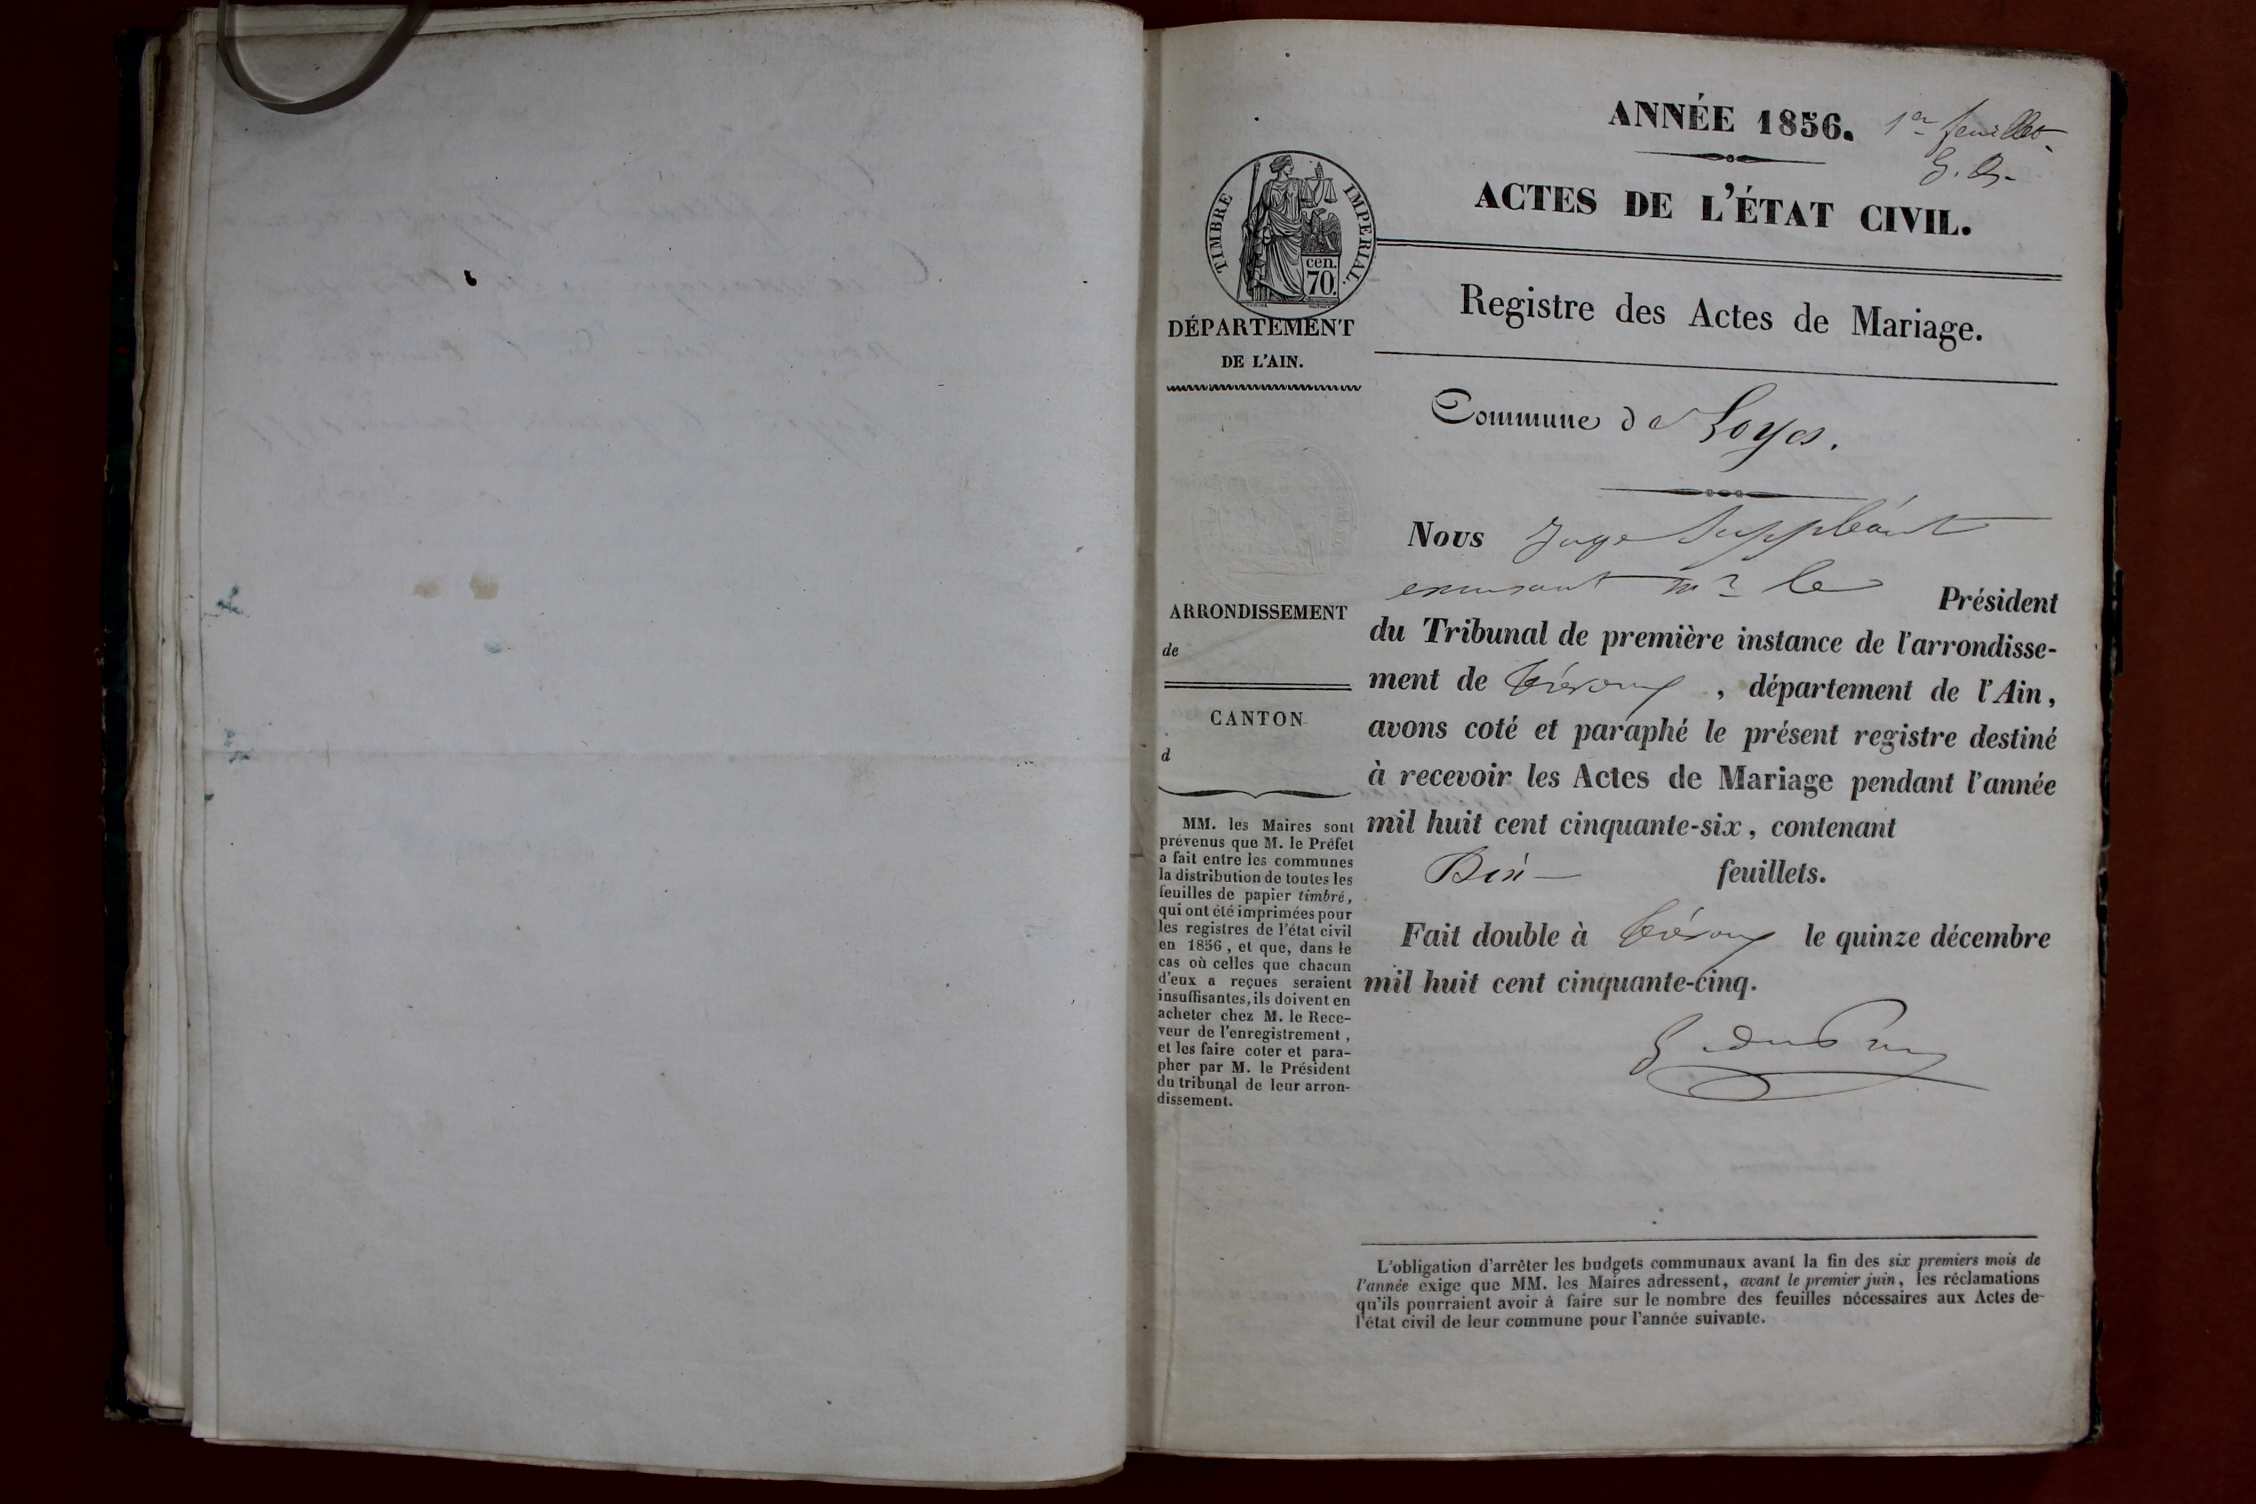 ANNÉE 1856. 1er feuillet
G. D.
ACTES DE L'ÉTAT CIVIL.
TIMBRE IMPERIAL.
cen.
70.
DÉPARTEMENT
DE L'AIN.
Registre des Actes de Mariage.
Commune de Loyes.
Nous Juge Suppléant
Mr le Président
du Tribunal de première instance de l'arrondisse-
ment de Trévoux, département de l'Ain,
avons coté et paraphé le présent registre destiné
à recevoir les Actes de Mariage pendant l'année
mil huit cent cinquante-six, contenant
Dix feuillets.
Fait double à Trévoux le quinze décembre
mil huit cent cinquante-cinq.
ARRONDISSEMENT
de
CANTON
d
MM. les Maires sont
prévenus que M. le Préfet
a fait entre les communes
la distribution de toutes les
feuilles de papier timbré,
qui ont été imprimées pour
les registres de l'état civil
en 1856, et que, dans le
cas où celles que chacun
d'eux a reçues seraient
insuffisantes, ils doivent en
acheter chez M. le Rece-
veur de l'enregistrement,
et les faire coter et para-
pher par M. le Président
du tribunal de leur arron-
dissement.
L'obligation d'arrêter les budgets communaux avant la fin des six premiers mois de
l'année exige que MM. les Maires adressent, avant le premier juin, les réclamations
qu'ils pourraient avoir à faire sur le nombre des feuilles nécessaires aux Actes de
l'état civil de leur commune pour l'année suivante.